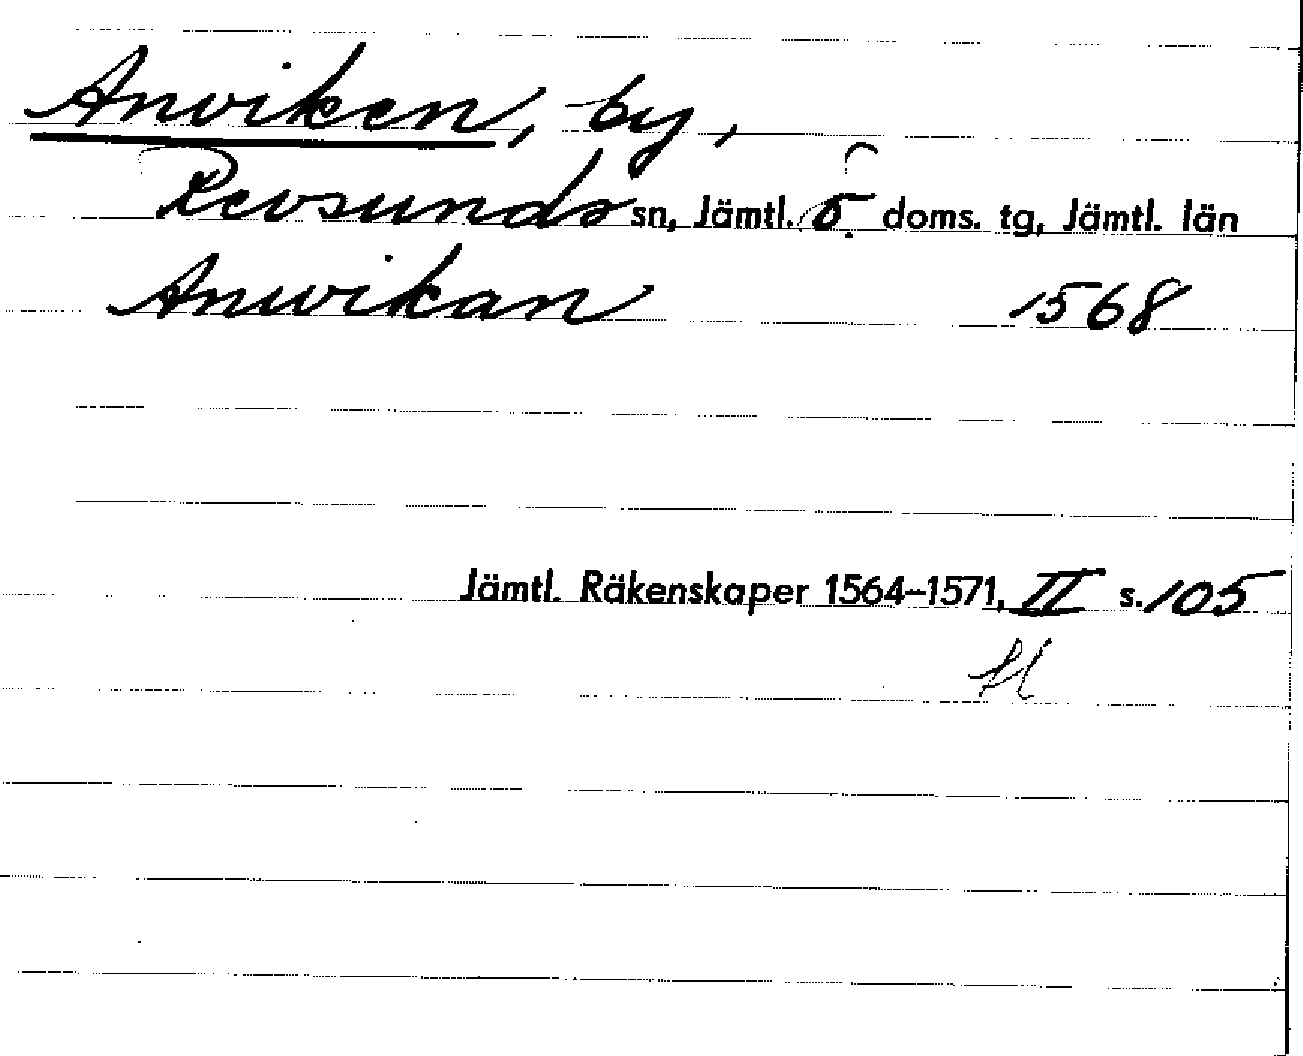 Anviken, by,
Revsunds sn, Jämtl. ö. doms. tg, Jämtl. län
Anwikan 1568
Jämtl. Räkenskaper 1564–1571, II s. 105